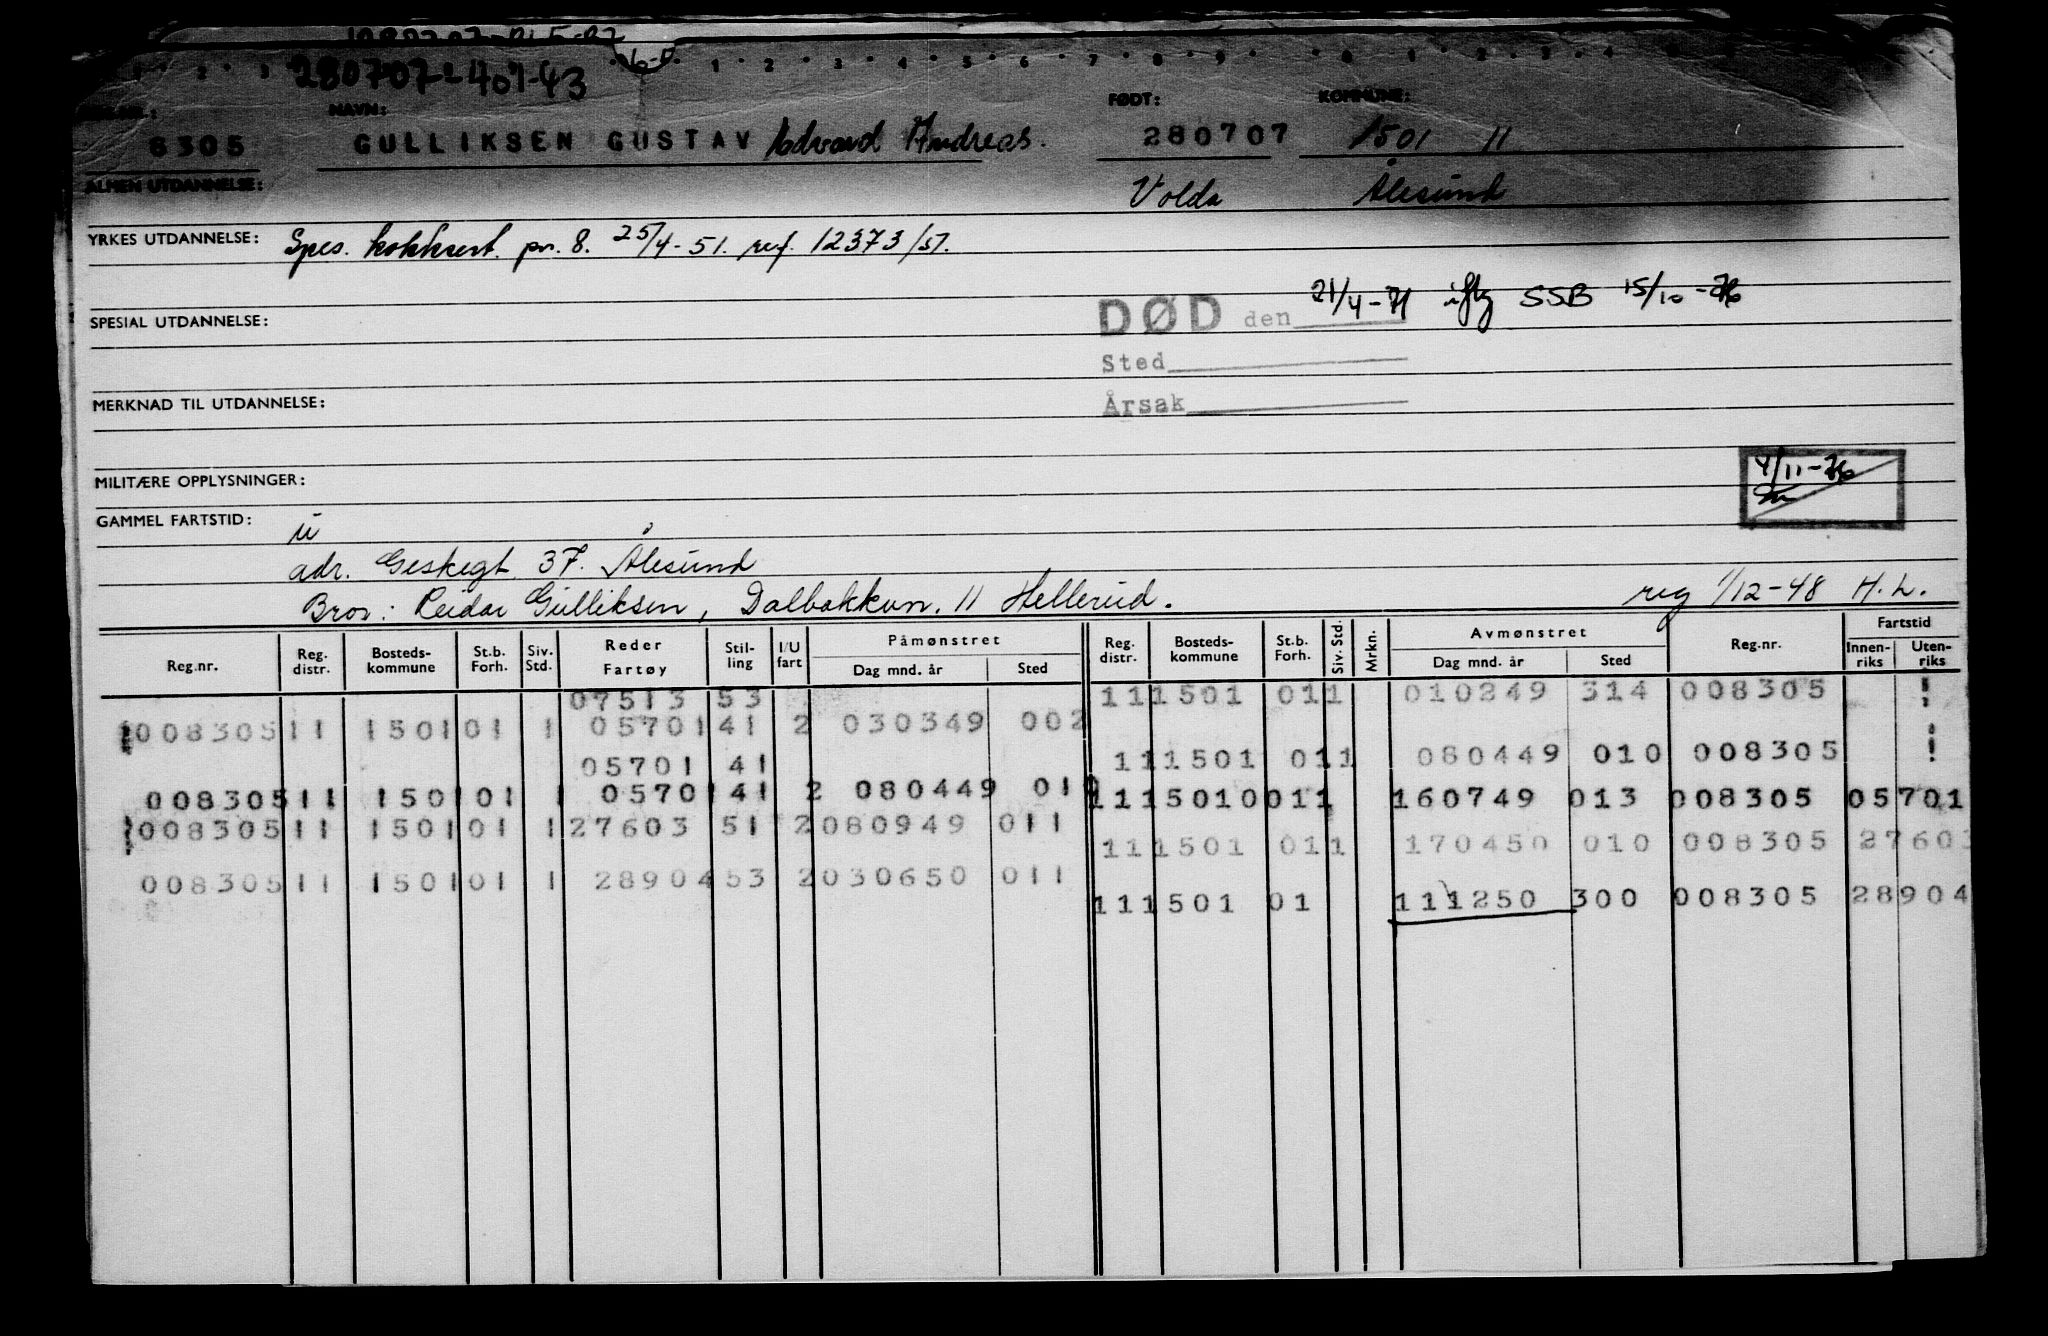 280707-40743
NAVN: FØDT: KOMMUNE:
8305 GULLIKSEN GUSTAV Edvard Andreas. 280707 1501 11
ALMEN UTDANNELSE: Volda Ålesund
YRKES UTDANNELSE: Spes. kokksert. pr. 8. 25/4-51. ref. 12373/51.
DØD den 21/4-71 iflg SSB 15/10-76
SPESIAL UTDANNELSE:
Sted
MERKNAD TIL UTDANNELSE: Årsak
MILITÆRE OPPLYSNINGER: 4/11-76
GAMMEL FARTSTID: u
adr. Geskegt. 37. Ålesund
Bror: Reidar Gulliksen, Dalbakkvn. 11 Hellerud. reg 1/12-48 H.L.
Reg.nr. Reg. distr. Bosteds-kommune St.b. Forh. Siv. Std. Reder Fartøy Stil-ling I/U fart Påmønstret Dag mnd. år Sted Reg. distr. Bosteds-kommune St.b. Forh. Siv. Std. Mrkn. Avmønstret Dag mnd. år Sted Reg.nr. Fartstid Innen-riks Uten-riks
07513 53 11 1501 01 1 010249 314 008305 !
008305 11 1501 01 1 05701 41 2 030349 002
05701 41 11 1501 01 1 080449 010 008305 !
008305 11 1501 01 1 05701 41 2 080449 010 11 15010 01 1 160749 013 008305 05701
008305 11 1501 01 1 27603 51 2 080949 011
11 1501 01 1 170450 010 008305 27603
008305 11 1501 01 1 28904 53 2 030650 011
11 1501 01 111250 300 008305 28904